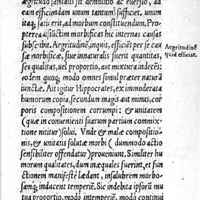 ægritudo sanitatis sit demolitio ac euersio, ad
eam efficiendam unum tantum sufficiet, unum
itaq; satis erit, ad morbum constituendum. Pro-
pterea iustum morbificas hic internas causas
subscribit. Aegritudine, inquit, efficit per se cau
sæ morbificæ, siue innaturales fuerit quantita-
tes, seu qualitates. Quæ quidem, nō extra hunc
ordinem, quoq; modo omnes simul præter natu
iuncta. Ait igitur Hippocrates, ex immoderata
humorum copia, secundum magis aut minus, cor
poris compositionem corrumpi: & unitatem
(quæ in conuenienti suarum partium commi-
xtione nititur) solui. Vnde & malæ compositio-
nis, & unitatis solutæ morbi (dummodo actio
sensibiliter offendatur) proueniunt. Similiter hu
morum qualitates, dum inæquales fuerint, et fun
ctionem manifestè lædant, insalubrem morbo-
samq; inducunt temperiē. Sic indebita ipsorū mu
tua proportio, modò intemperiē, modò continui
Aegritudinē
quid efficiat.